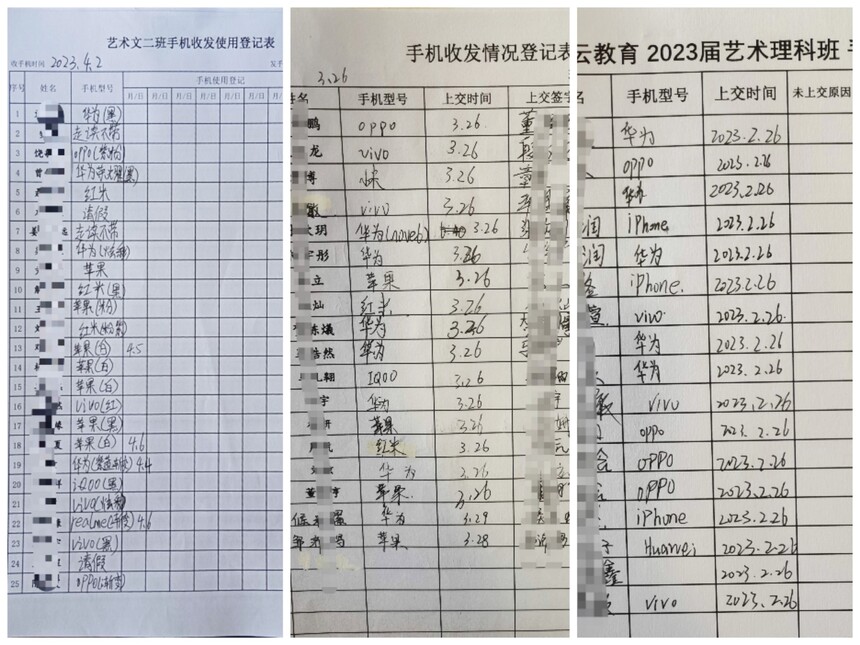 艺术文二班手机收发使用登记表
收手机时间 2023.4.2
序号 姓名 手机型号 手机使用登记
月/日 月/日 月/日 月/日 月/日 月/日
1 华为(黑)
2 走读不带
3 oppo(紫粉)
4 华为荣耀(黑)
5 红米
6 请假
7 走读不带
8 华为
9 苹果
10 红米(黑)
11 苹果(粉)
12 红米
13 苹果(白) 4.5
14 苹果(白)
15 苹果(白)
16 vivo(红)
17 苹果(黑)
18 夏 苹果(白) 4.6
19 华为 4.4
20 iQOO(黑)
21 vivo
22 realme(渐变) 4.6
23 vivo(黑)
24 请假
25 oppo(渐变)
手机收发情况登记表
3.26
姓名 手机型号 上交时间 上交签字
鹏 oppo 3.26
龙 vivo 3.26
博 3.26
vivo 3.26
玥 华为(nova6) 3.26
彤 华为 3.26
立 苹果 3.26
灿 红米 3.26
陈 华为 3.26
浩然 华为 3.26
IQOO 3.26
宇 华为 3.26
苹果 3.26
红米 3.26
华为 3.26
苹果 3.26
华为 3.29
苹果 3.28
云教育 2023届艺术理科班
名 手机型号 上交时间 未上交原因
华为 2023.2.26
oppo 2023.2.26
华为 2023.2.26
润 iPhone 2023.2.26
润 华为 2023.2.26
iPhone. 2023.2.26
萱 vivo 2023.2.26
华为 2023.2.26
华为 2023.2.26
vivo 2023.2.26
oppo 2023.2.26
oppo 2023.2.26
oppo 2023.2.26
iPhone 2023.2.26
Huawei 2023.2.26
鑫 2023.2.26
vivo 2023.2.26